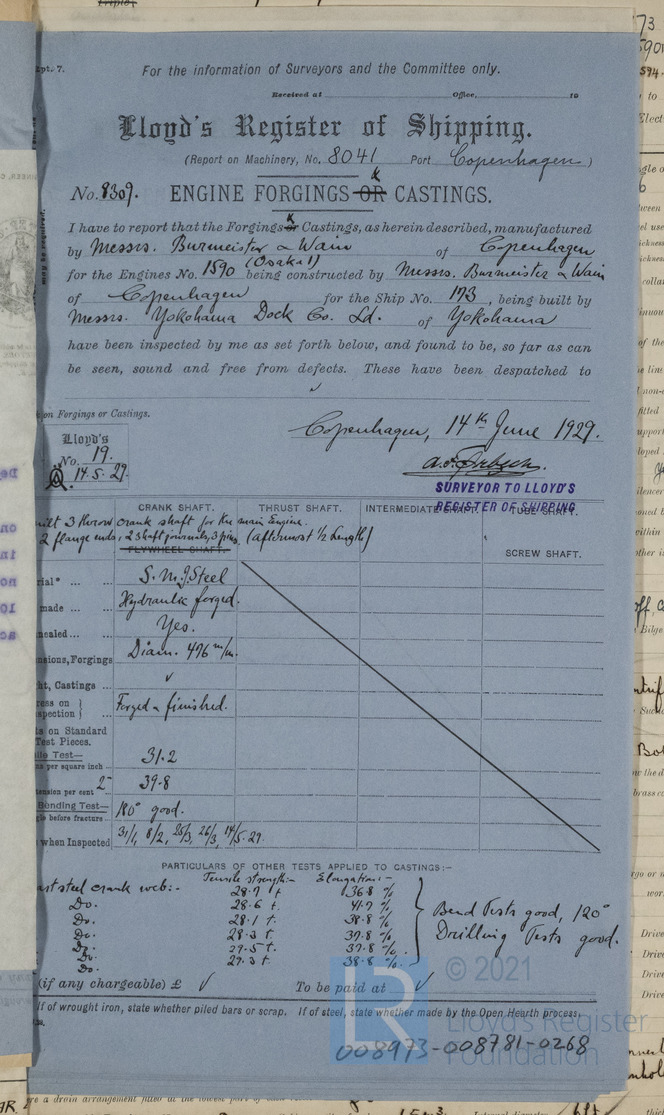 pt. 7.
For the information of Surveyors and the Committee only.
Received at Office, 19
Lloyd's Register of Shipping.
(Report on Machinery, No. 8041 Port Copenhagen)
No. 8309. ENGINE FORGINGS OR & CASTINGS.
may be required.
I have to report that the Forgings or & Castings, as herein described, manufactured
by Messrs. Burmeister & Wain of Copenhagen
for the Engines No. 1590 (Osaka 1) being constructed by Messrs. Burmeister & Wain
of Copenhagen for the Ship No. 173, being built by
Messrs. Yokohama Dock Co. Ld. of Yokohama
have been inspected by me as set forth below, and found to be, so far as can
be seen, sound and free from defects. These have been despatched to
on Forgings or Castings.
Copenhagen, 14th June 1929.
Lloyd's
No. 19.
14.5.29.
SURVEYOR TO LLOYD'S
REGISTER OF SHIPPING
CRANK SHAFT. THRUST SHAFT. INTERMEDIATE SHAFT. TUBE SHAFT.
uilt 3 throw crank shaft for the main Engine.
2 flange ends, 2 shaft journals, 3 pins. (aftermost 1/2 length)
FLYWHEEL SHAFT.
SCREW SHAFT.
rial* S.M.J. Steel
made Hydraulic forged.
nealed Yes.
nsions, Forgings Diam. 476 m/m.
ht, Castings ✓
ress on
spection Forged & finished.
s on Standard
Test Pieces.
le Test—
ns per square inch 31.2
tension per cent 2" 39.8
Bending Test—
gle before fracture 180° good.
when Inspected 31/1, 8/2, 25/3, 26/3, 14/5.29.
PARTICULARS OF OTHER TESTS APPLIED TO CASTINGS:—
Tensile strength:- Elongation:-
ast steel crank web:- 28.7 t. 36.8 %
Do. 28.6 t. 41.7 %
Do. 28.1 t. 38.8 %
Do. 28.3 t. 37.8 %
Do. 27.5 t. 37.8 %
Do. 27.3 t. 38.8 %
Do.
Bend Tests good, 120°
Drilling Tests good.
(if any chargeable) £ ✓ To be paid at ✓
If of wrought iron, state whether piled bars or scrap. If of steel, state whether made by the Open Hearth process,
LR
© 2021
Lloyd's Register
Foundation
008973-008781-0268